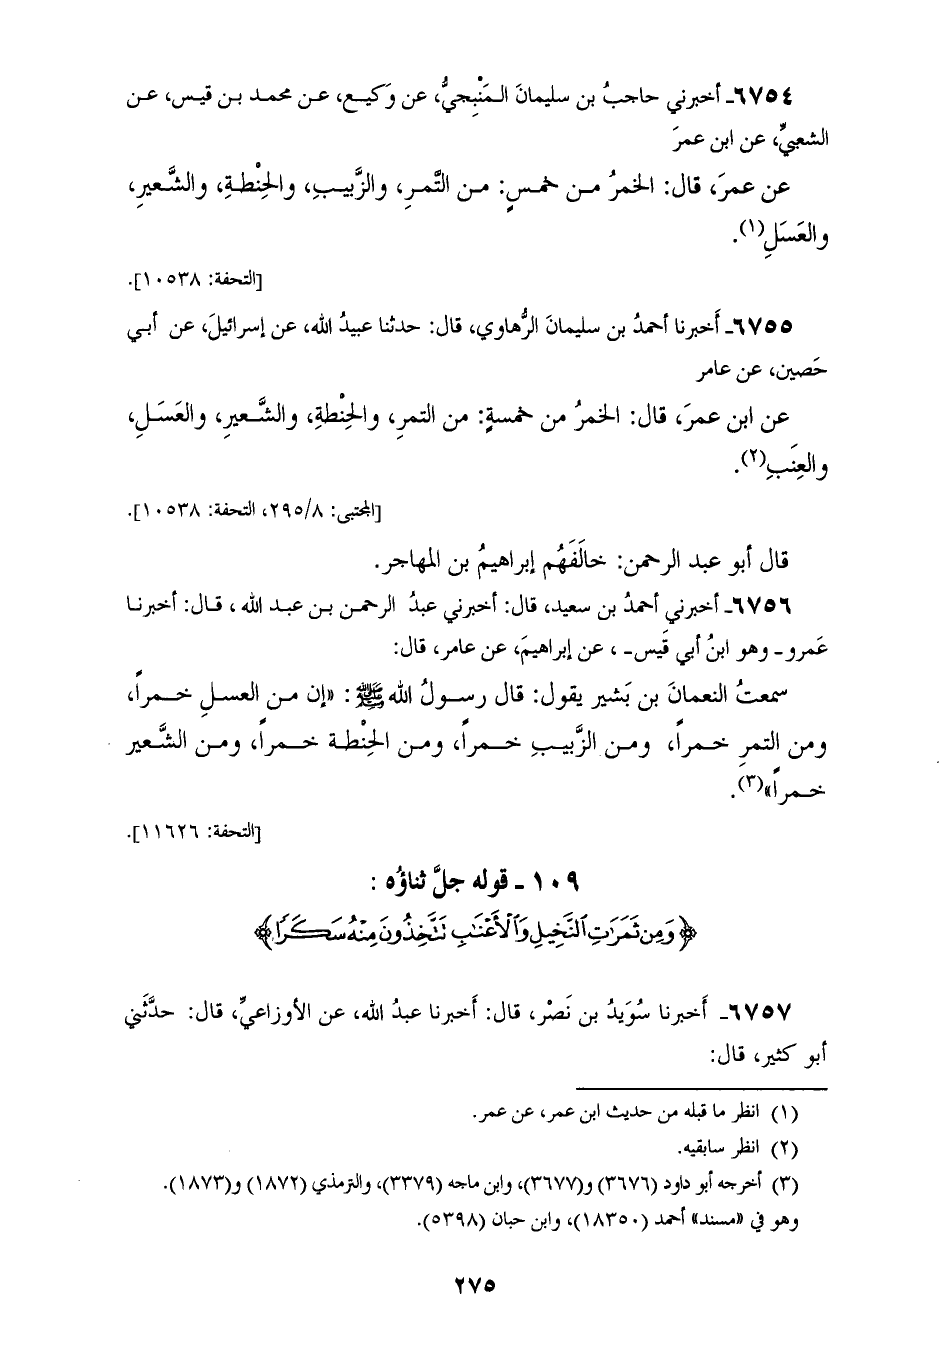 ٦٧٥٤ـ أخبرني حاجبُ بن سليمانَ المَنْبِجيُّ، عن وَكيع، عن محمد بن قيس، عن
الشعبيِّ، عن ابن عمرَ
عن عمرَ، قال: الخمرُ من خمسٍ: من التَّمرِ، والزَّبيبِ، والحِنْطةِ، والشَّعيرِ،
والعَسَلِ(١).
[التحفة: ١٠٥٣٨].
٦٧٥٥ـ أَخبرنا أحمدُ بن سليمانَ الرُّهاوي، قال: حدثنا عبيدُ الله، عن إسرائيلَ، عن أبي
حَصين، عن عامر
عن ابن عمرَ، قال: الخمرُ من خمسةٍ: من التمرِ، والحِنْطةِ، والشَّعيرِ، والعَسَلِ،
والعِنَبِ(٢).
[المجتبى: ٢٩٥/٨، التحفة: ١٠٥٣٨].
قال أبو عبد الرحمن: خالَفَهُم إبراهيمُ بن المهاجر.
٦٧٥٦ـ أخبرني أحمدُ بن سعيد، قال: أخبرني عبدُ الرحمن بن عبد الله، قال: أخبرنا
عَمرو ـ وهو ابنُ أبي قَيس ـ ، عن إبراهيمَ، عن عامر، قال:
سمعتُ النعمانَ بن بَشير يقول: قال رسولُ الله ﷺ : «إن من العسلِ خمراً،
ومن التمرِ خمراً، ومن الزَّبيبِ خمراً، ومن الحِنْطة خمراً، ومن الشَّعير
خمراً»(٣).
[التحفة: ١١٦٢٦].
١٠٩ ـ قوله جلَّ ثناؤُه :
﴿وَمِن ثَمَرَٰتِ ٱلنَّخِيلِ وَٱلْأَعْنَٰبِ تَتَّخِذُونَ مِنْهُ سَكَرًا﴾
٦٧٥٧ـ أَخبرنا سُوَيدُ بن نَصْر، قال: أَخبرنا عبدُ الله، عن الأوزاعيِّ، قال: حدَّثَني
أبو كثير، قال:
(١) انظر ما قبله من حديث ابن عمر، عن عمر.
(٢) انظر سابقيه.
(٣) أخرجه أبو داود (٣٦٧٦) و(٣٦٧٧)، وابن ماجه (٣٣٧٩)، والترمذي (١٨٧٢) و(١٨٧٣).
وهو في «مسند» أحمد (١٨٣٥٠)، وابن حبان (٥٣٩٨).
٢٧٥